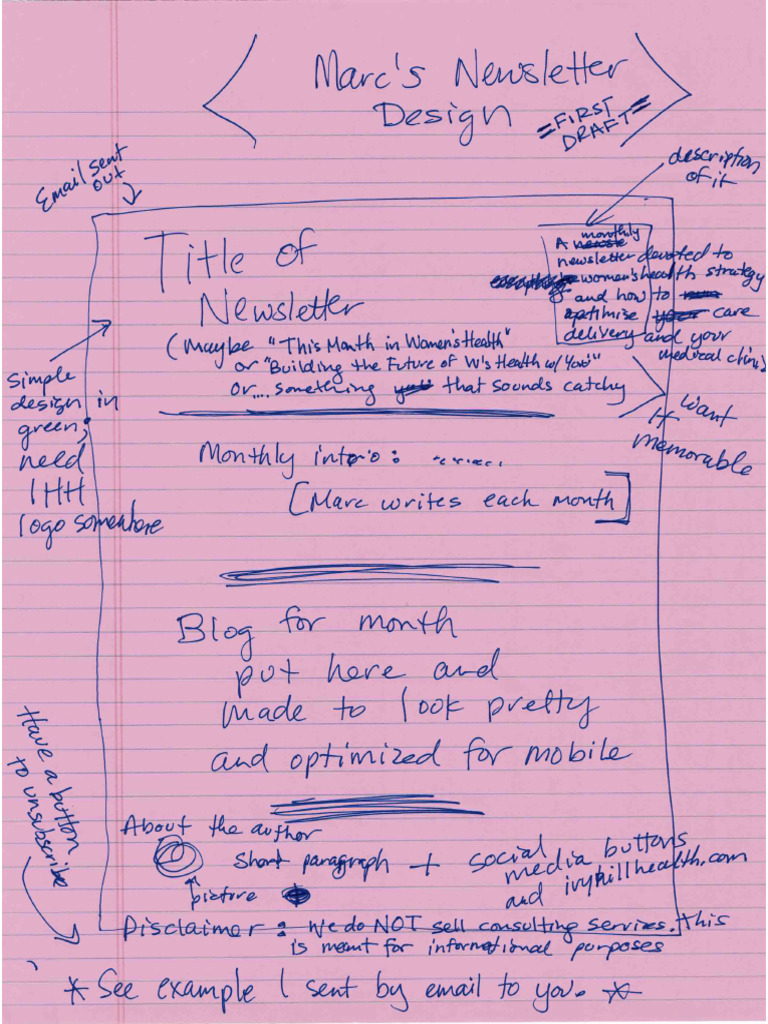 Marc's Newsletter
Design
=FIRST
DRAFT=
Email sent
out
description
of it
Title of
Newsletter
(Maybe "This Month in Women's Health"
or "Building the Future of W's Health w/ You"
or.... something that sounds catchy
A monthly
newsletter devoted to
women's health strategy
and how to
optimise care
delivery and your
medical clinic
want
it
memorable
simple
design in
green;
need
IHH
logo somewhere
Monthly intro: .......
[Marc writes each month]
Blog for month
put here and
made to look pretty
and optimized for mobile
Have a button
to unsubscribe
About the author
short paragraph + social
media buttons
and ivyhillhealth.com
picture
Disclaimer: We do NOT sell consulting services. This
is meant for informational purposes
* See example I sent by email to you. *